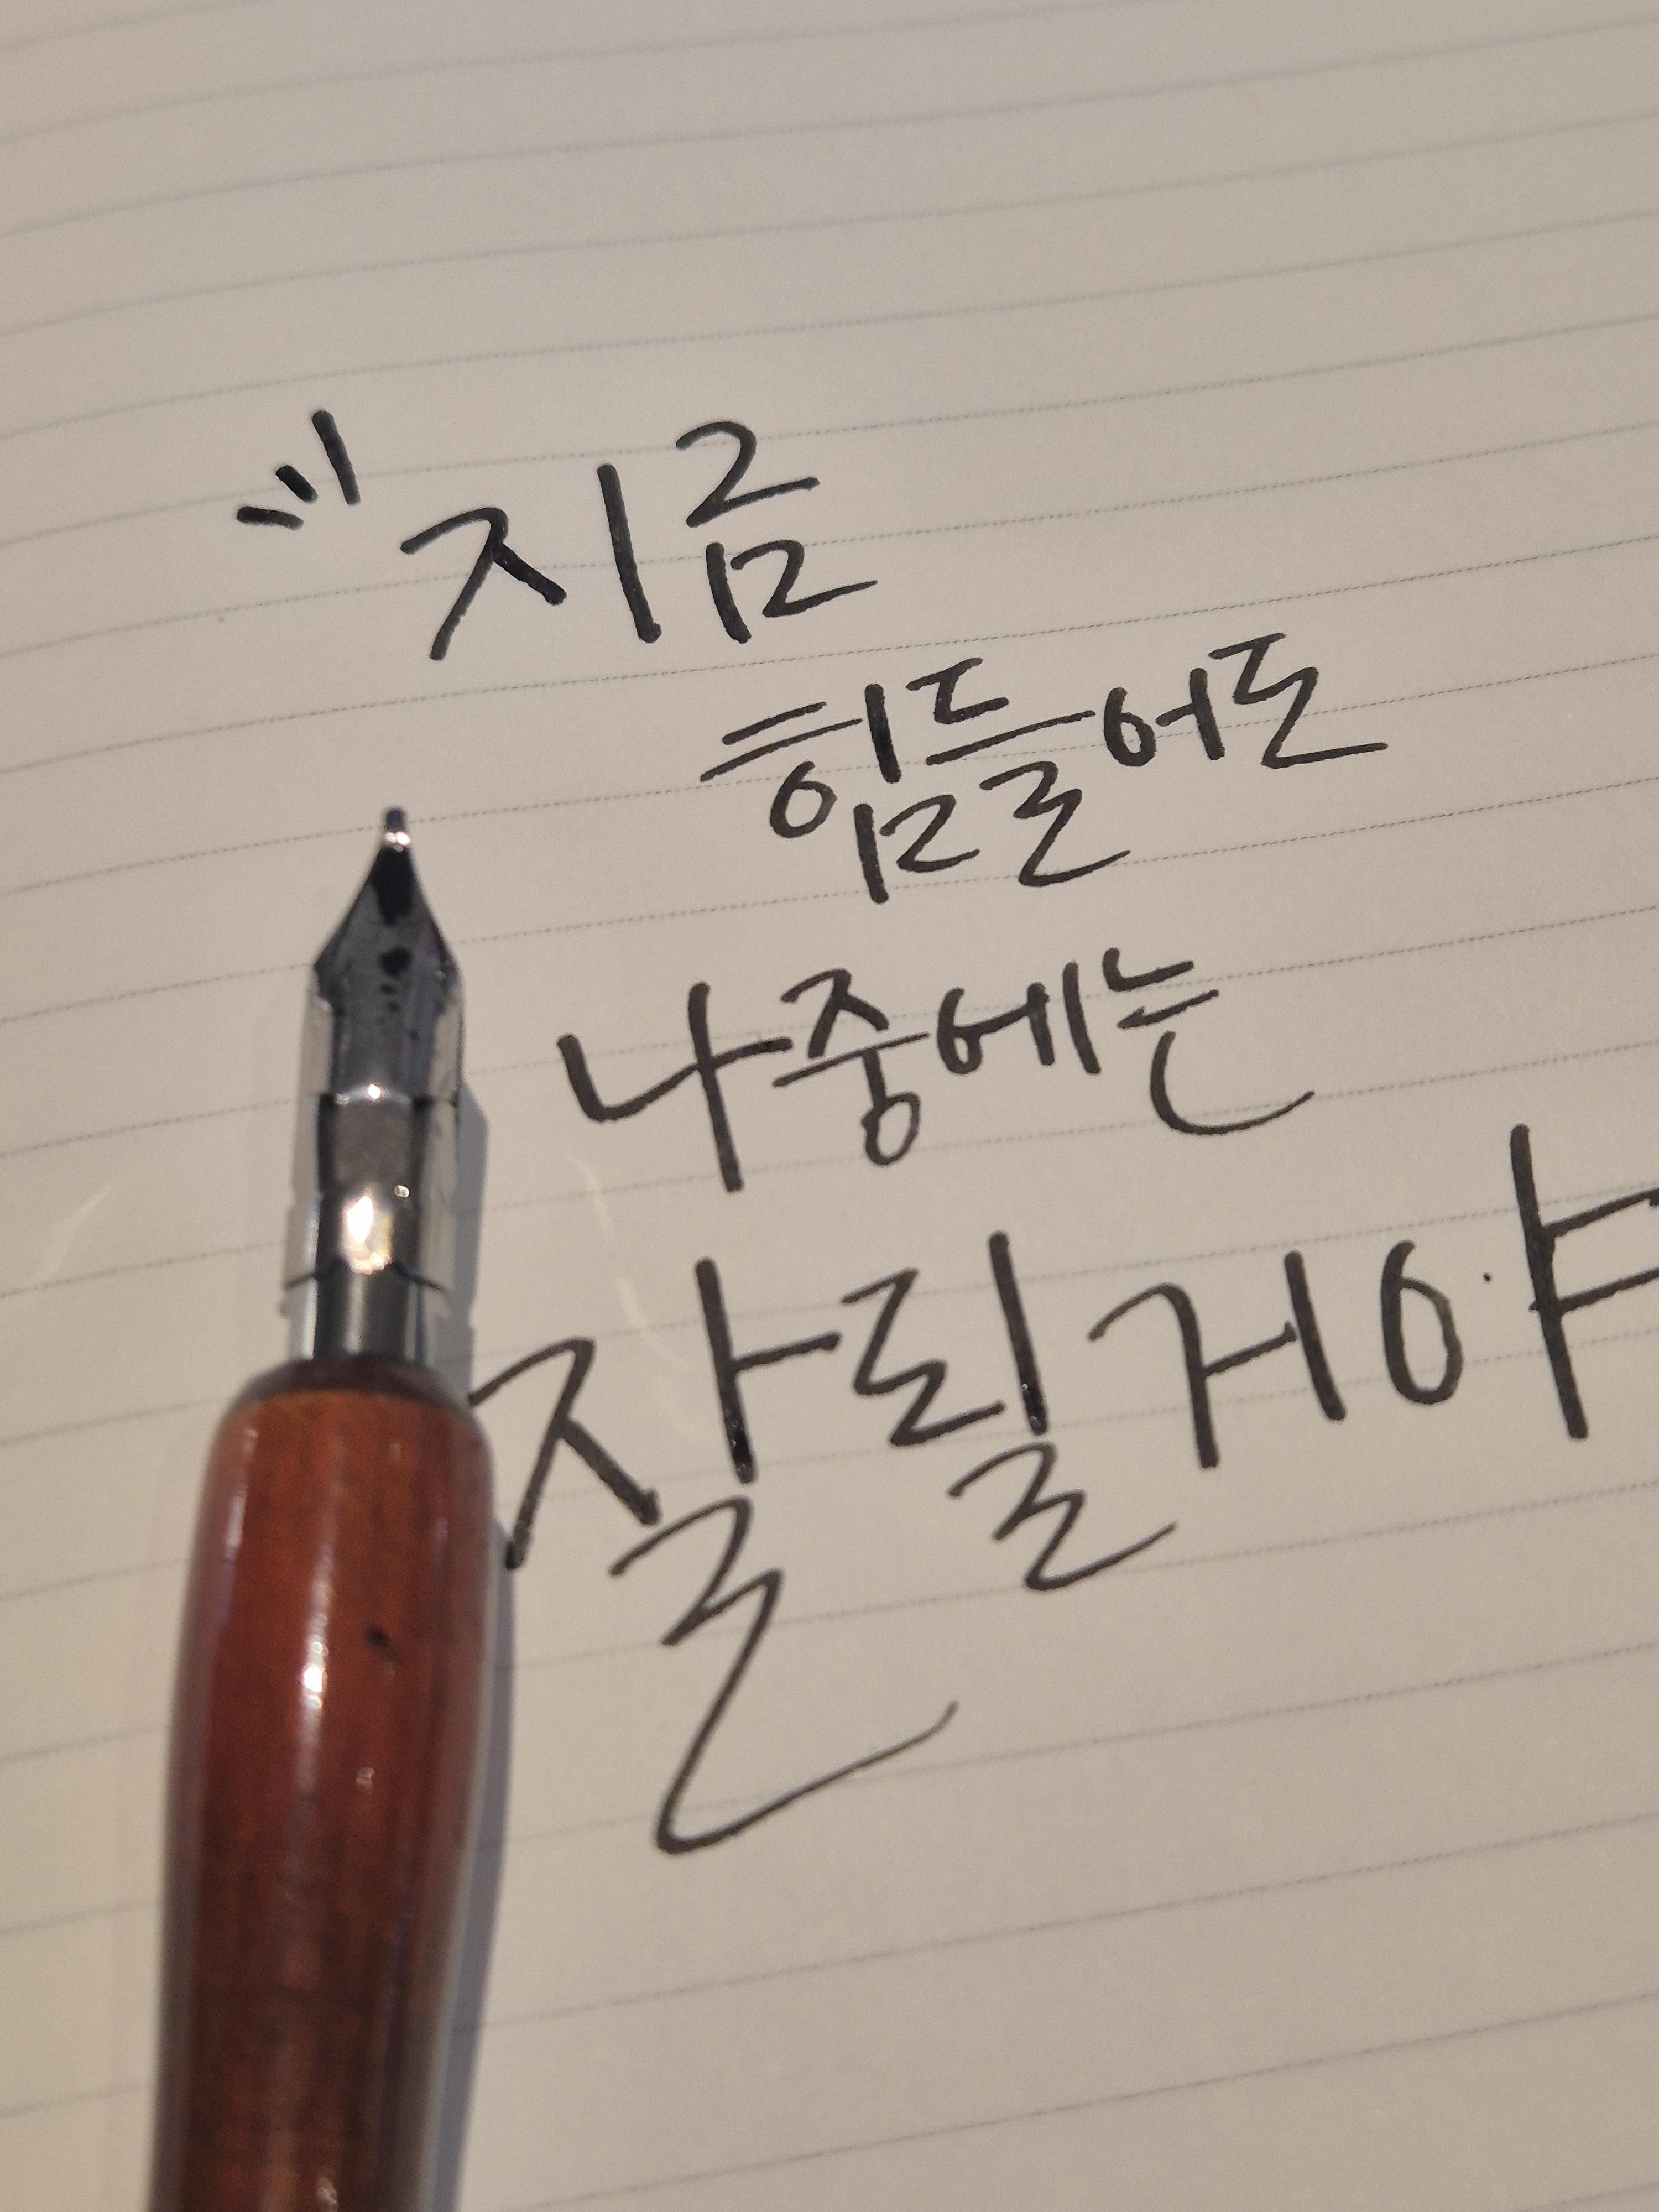 지금
힘들어도
나중에는
잘될거야